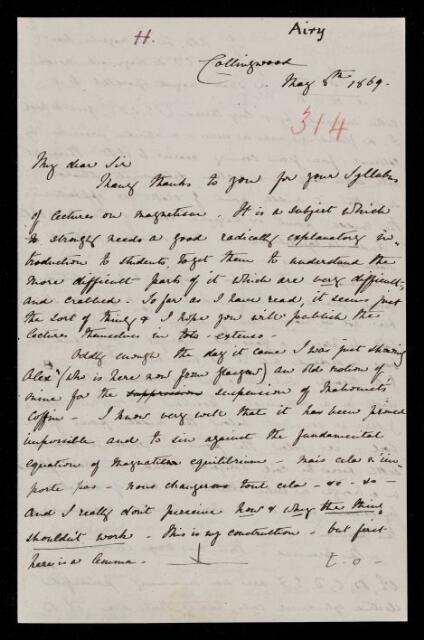 H.
Airy
Collingwood
May 8th 1869.
314
My dear Sir
Many thanks to you for your Syllabus
of lectures on magnetism. It is a subject which
so strongly needs a good radically explanatory in-
troduction to students, to get them to understand the
more difficult parts of it which are very difficult
and crabbed. So far as I have read, it seems just
the sort of thing & I hope you will publish the
lectures themselves in toto - extenso.
Oddly enough the day it came I was just showing
Alexr (who is here now from Glasgow) an old notion of
mine for the suppression suspension of Mahomets
Coffin - I know very well that it has been proved
impossible and to sin against the fundamental
equation of magnetism equilibrium - mais cela n'im-
porte pas - nous changerons tout cela - &c - &c -
And I really don't perceive how & why the thing
shouldn't work. This is my construction - but first
here is a Lemma.
t. o -